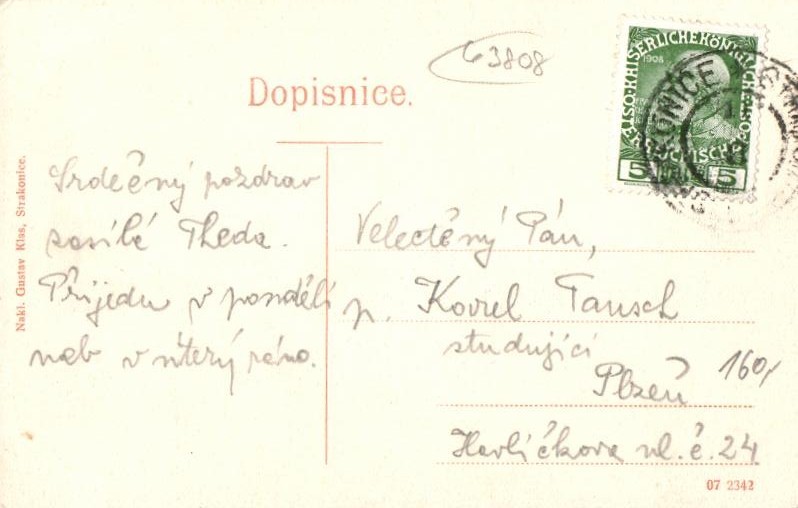 63808
Dopisnice.
KAISERLICHE KÖNIGLICHE ÖSTERREICHISCHE
1908
5 5
Srdečný pozdrav
zasílá Theda.
Přijedu v pondělí
neb v úterý ráno.
Velectěný Pán,
p. Karel Tausch
studující
Plzeň
160,-
Havlíčkova ul. č. 24
Nakl. Gustav Klas, Strakonice.
07 2342